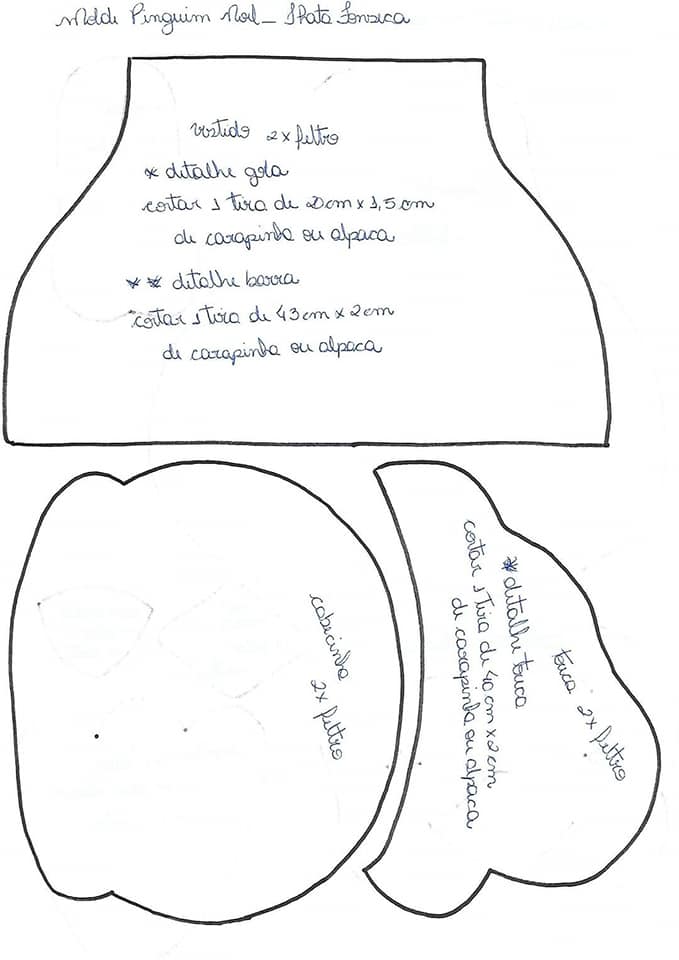 Molde Pinguim Noel _ Thata Fonseca
vestido 2x feltro
* detalhe gola
cortar 1 tira de 20cm x 1,5 cm
de carapinha ou alpaca
** detalhe barra
cortar 1 tira de 43 cm x 2 cm
de carapinha ou alpaca
cabecinha
2x feltro
touca 2x feltro
* detalhe touca
cortar 1 tira de 40 cm x 2 cm
de carapinha ou alpaca